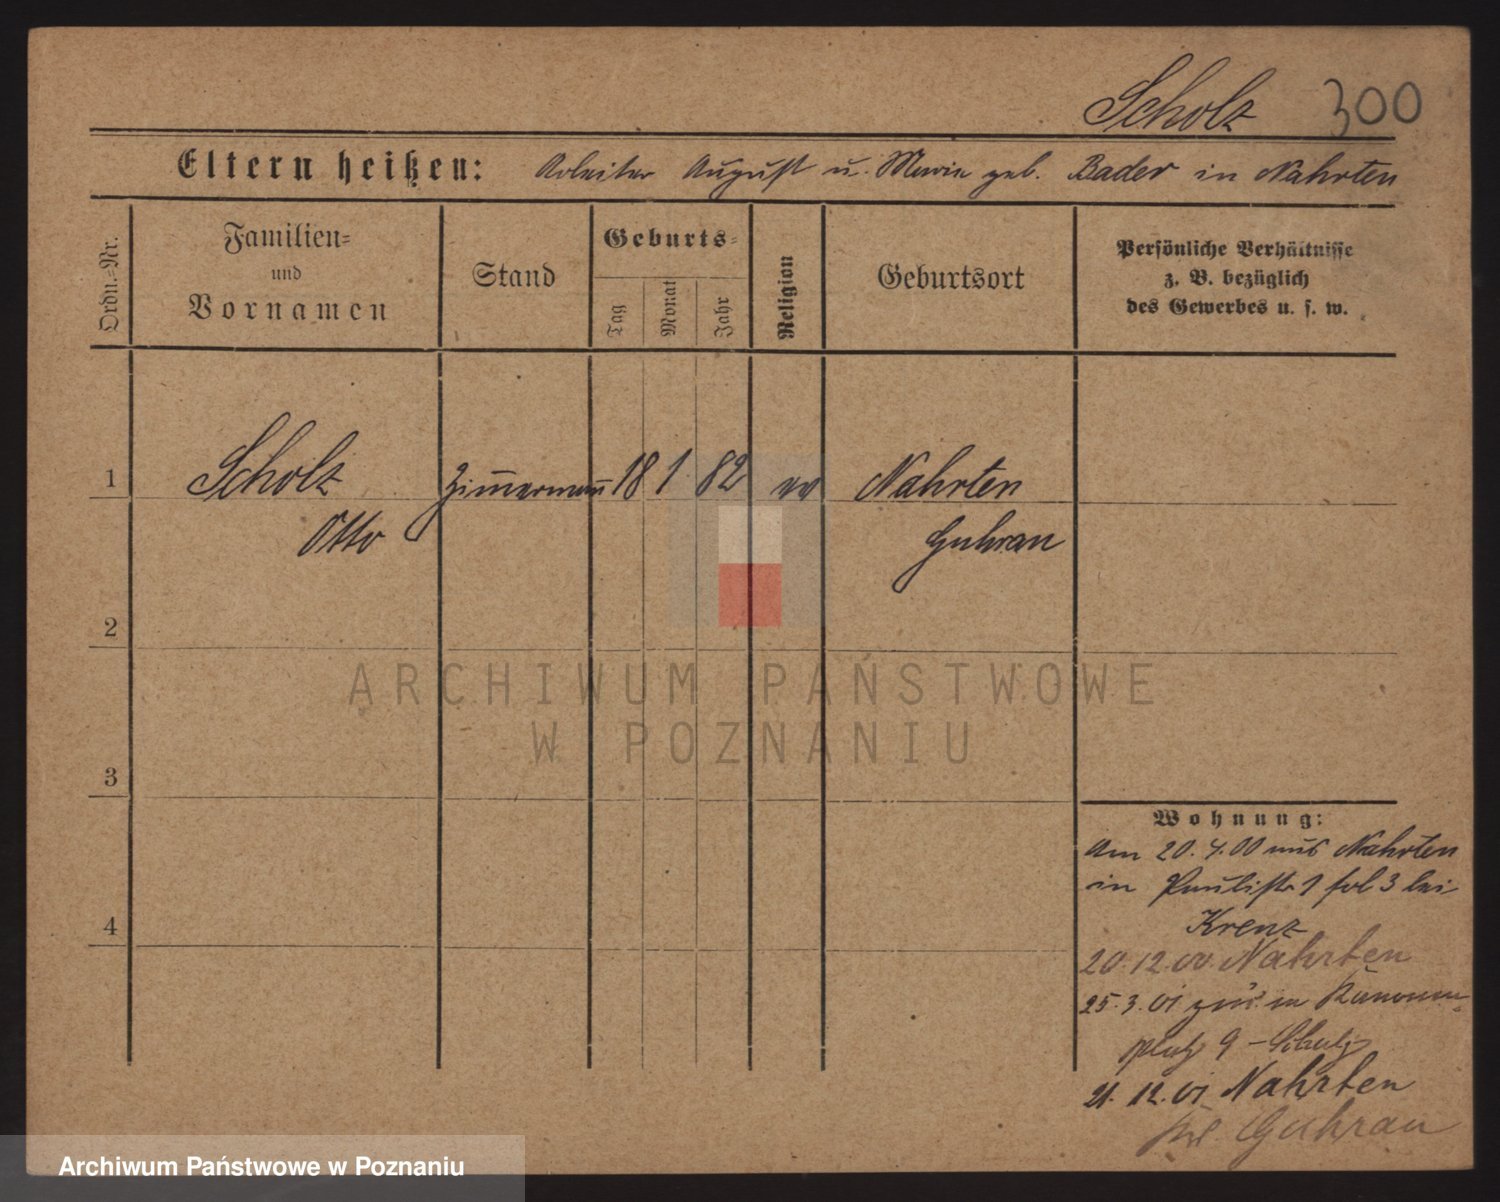 Scholz 300
Eltern heißen: Arbeiter August u. Marie geb. Bader in Nahrten
Ordn.-Nr.
Familien-
und
Vornamen
Stand
Geburts-
Tag
Monat
Jahr
Religion
Geburtsort
Persönliche Verhältnisse
z. B. bezüglich
des Gewerbes u. s. w.
1 Scholz Zimmermann 18 1 82 ev Nahrten
Otto Guhrau
2
3
4
Wohnung:
Am 20.4.00 aus Nahrten
in Paulistr 1 bei
Krenz
20.12.00. Nahrten
25.3.01 zur. in Kanonen-
platz 9 - Schulz
21.12.01 Nahrten
Guhrau
ARCHIWUM PAŃSTWOWE
W POZNANIU
Archiwum Państwowe w Poznaniu